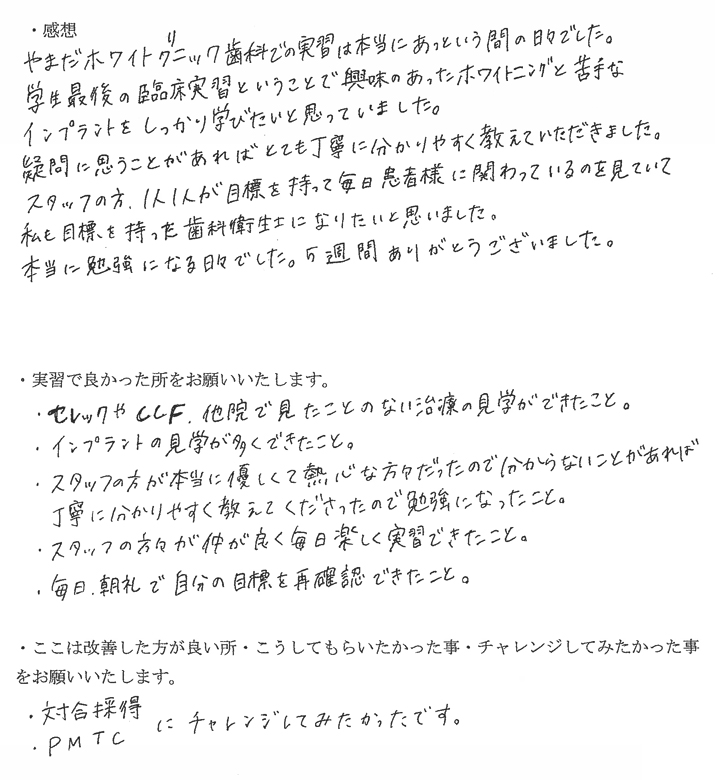 ・感想
やまだホワイトクリニック歯科での実習は本当にあっという間の日々でした。
学生最後の臨床実習ということで興味のあったホワイトニングと苦手な
インプラントをしっかり学びたいと思っていました。
疑問に思うことがあればとても丁寧に分かりやすく教えていただきました。
スタッフの方、1人1人が目標を持って毎日患者様に関わっているのを見ていて
私も目標を持った歯科衛生士になりたいと思いました。
本当に勉強になる日々でした。5週間ありがとうございました。
・実習で良かった所をお願いいたします。
・セレックやCCF、他院で見たことのない治療の見学ができたこと。
・インプラントの見学が多くできたこと。
・スタッフの方が本当に優しくて熱心な方々だったので分からないことがあれば
丁寧に分かりやすく教えてくださったので勉強になったこと。
・スタッフの方々が仲が良く毎日楽しく実習できたこと。
・毎日、朝礼で自分の目標を再確認できたこと。
・ここは改善した方が良い所・こうしてもらいたかった事・チャレンジしてみたかった事
をお願いいたします。
・対合採得
・PMTC
にチャレンジしてみたかったです。